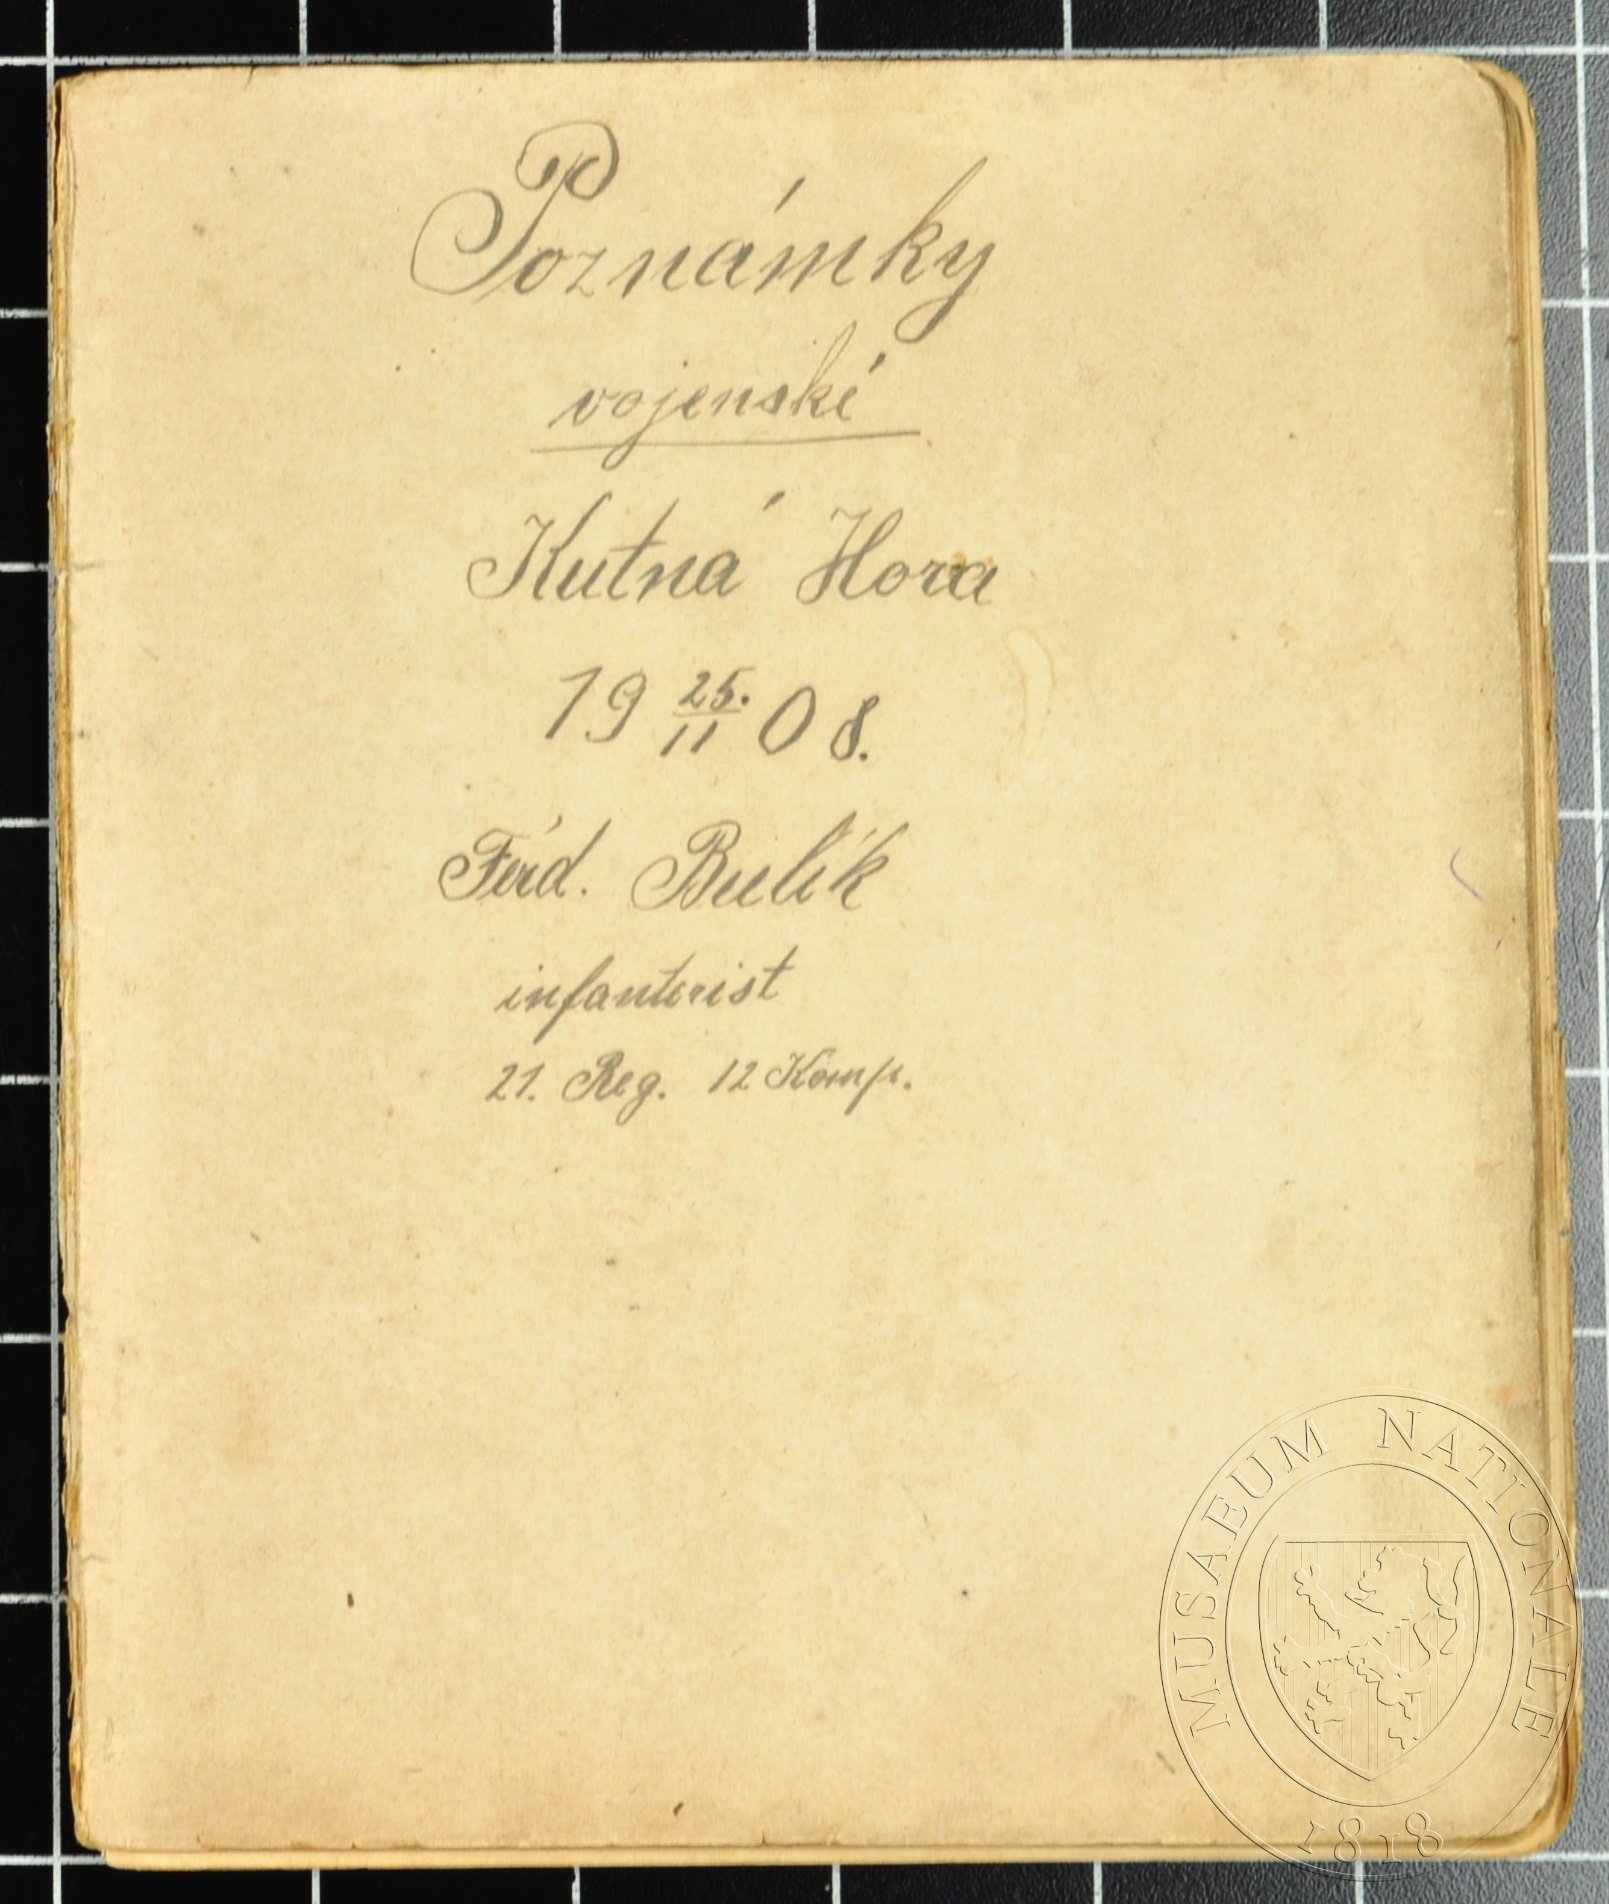 Poznámky
vojenské
Kutná Hora
19 25./11 08.
Ferd. Bulík
infanterist
21. Reg. 12 Komp.
MUSAEUM NATIONALE
1818